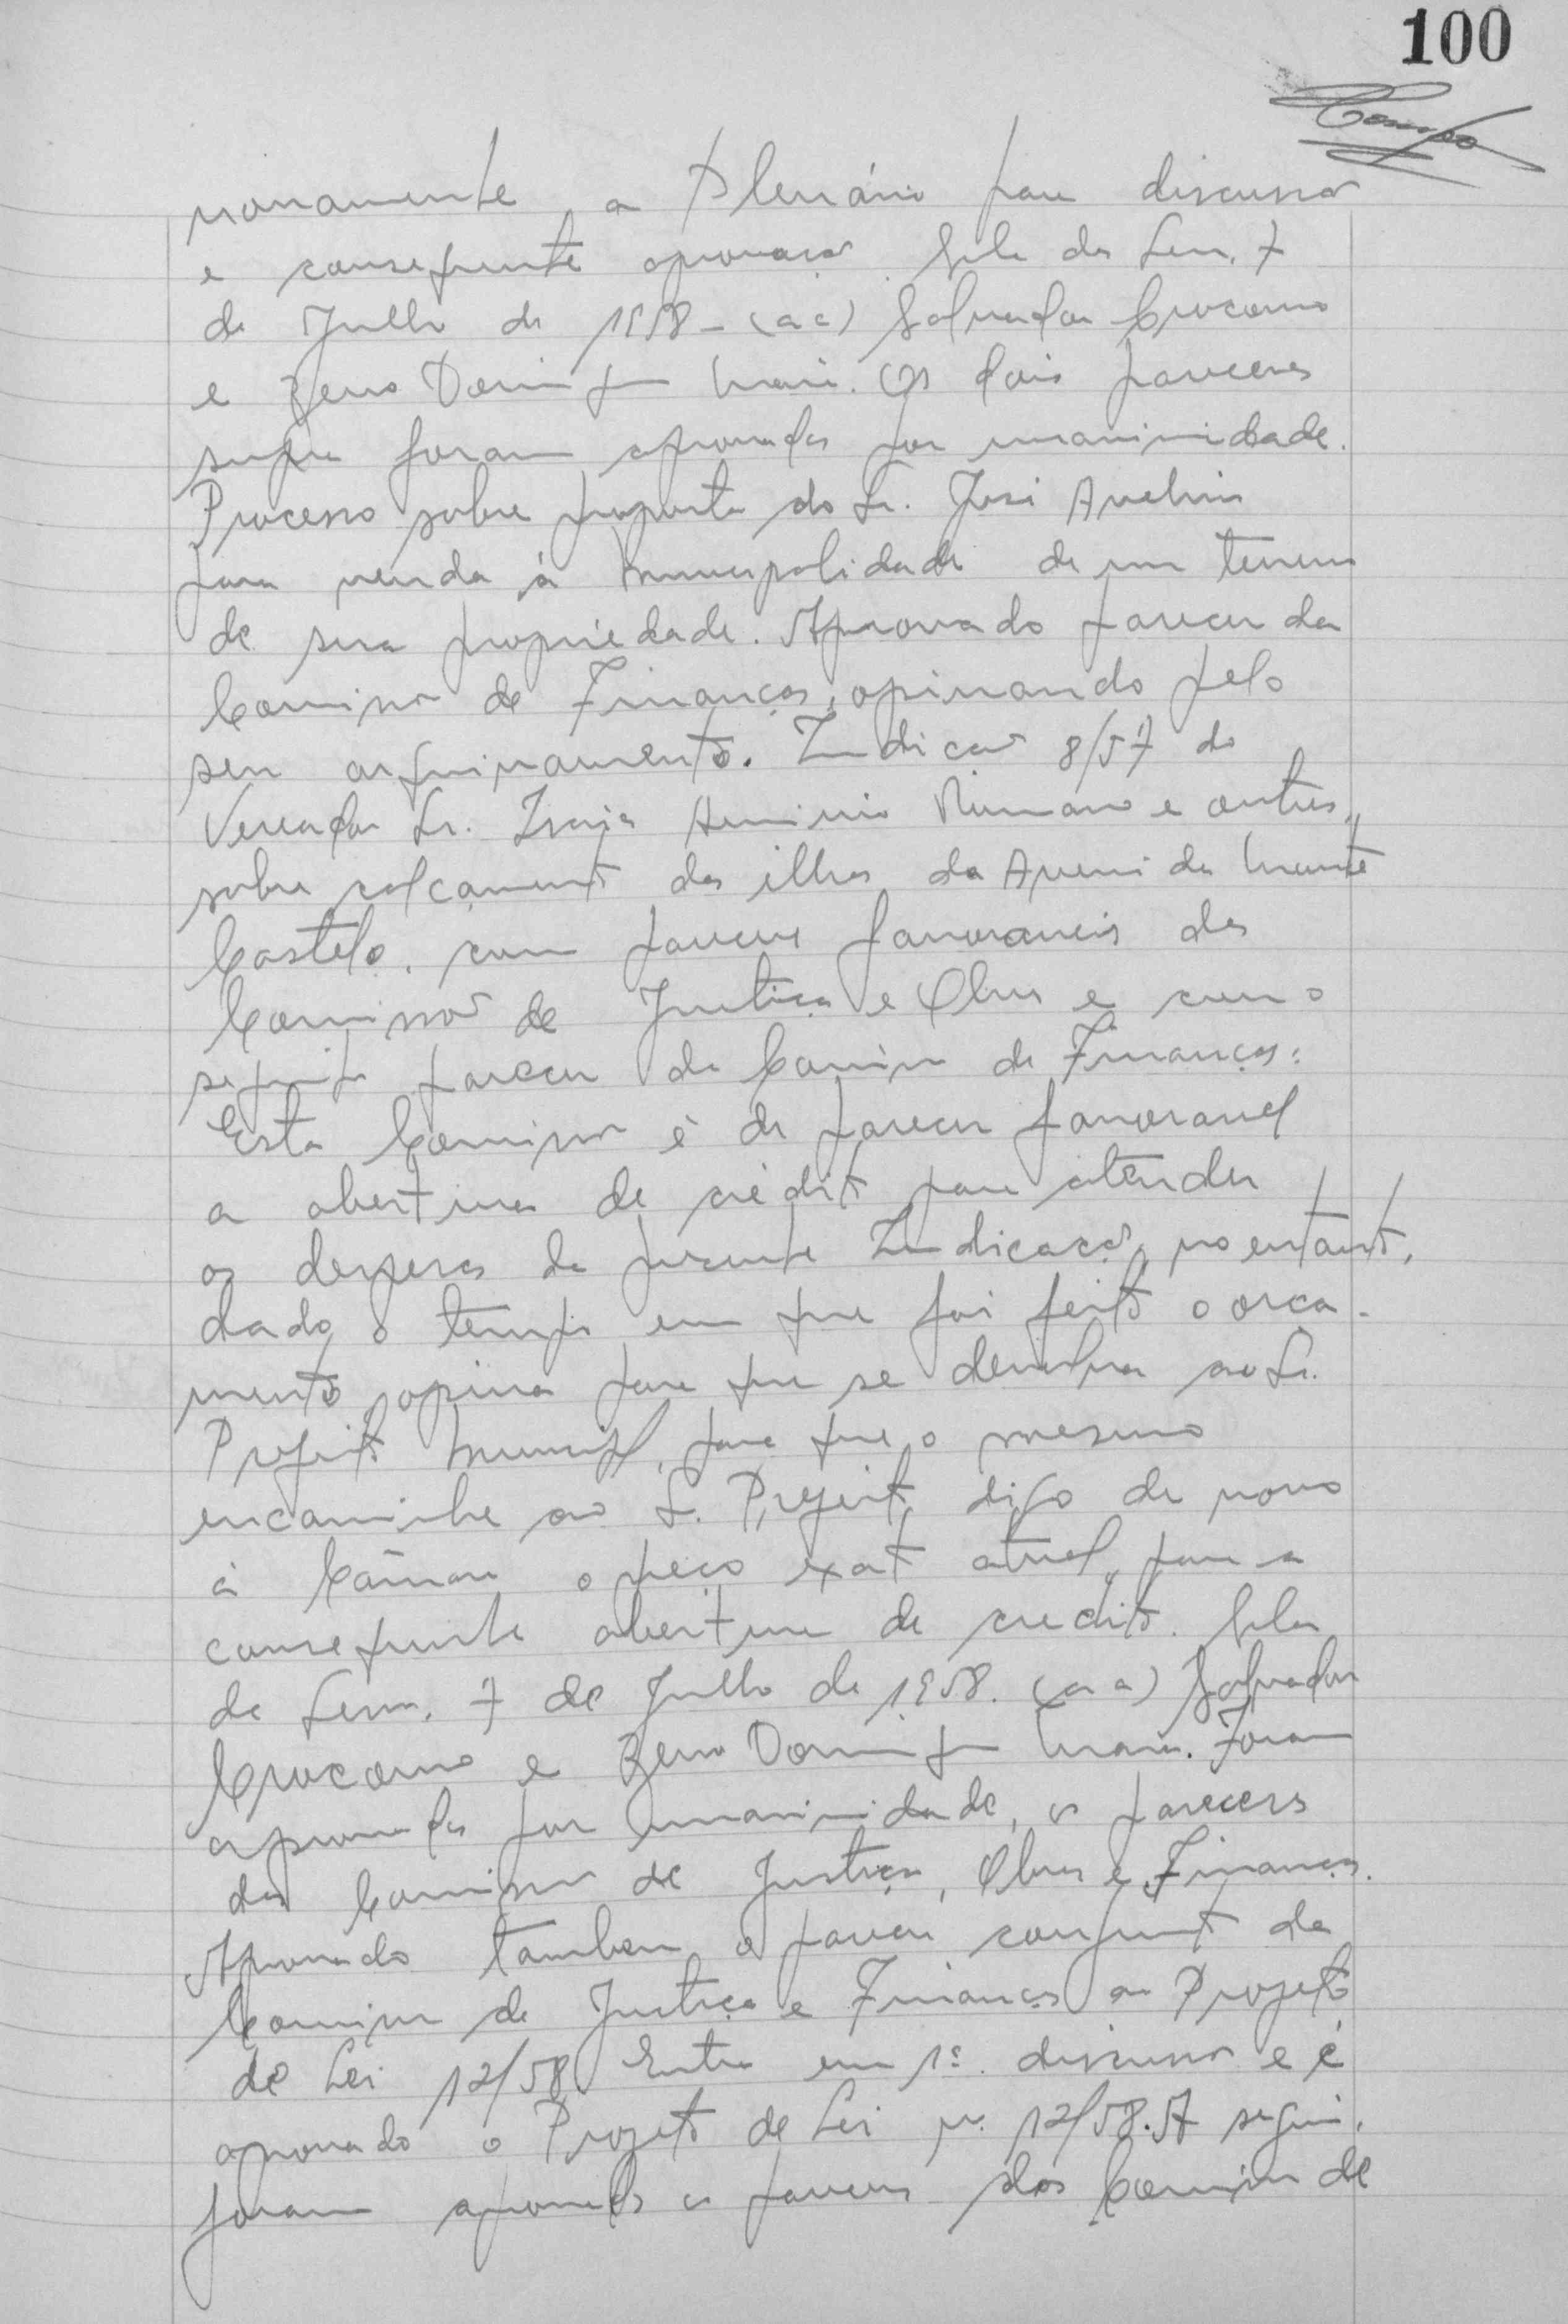 100
Campos
novamente a Plenário para discussão
e consequente aprovação. Sala das Sen. 7
de Julho de 1958 - (aa) Salvador Crocomo
e Zeno Domingo Maia. Os dois pareceres
supra foram aprovados por unanimidade.
Processo sobre proposta do Sr. José Avelino
para venda à Municipalidade de um terreno
de sua propriedade. Aprovado parecer da
Comissão de Finanças, opinando pelo
seu arquivamento. Indicação 8/57 do
Vereador Sr. Isaias Herminio Romano e outros,
sobre calçamento das ilhas da Avenida Monte
Castelo, com pareceres favoraveis das
Comissão de Justiça e Obras e com o
seguinte parecer da Comissão de Finanças:
Esta Comissão é de parecer favoravel
a abertura de crédito para atender
as despesas da presente Indicação, no entanto,
dado o tempo em que foi feito o orça-
mento, opina para que se devolva ao Sr.
Prefeito Municipal, para que o mesmo
encaminhe ao Sr. Prefeito, digo de novo
à Câmara o preço exato atual, para a
consequente abertura de credito. Sala
de Senn. 7 de Julho de 1958. (aa) Salvador
Crocomo e Zeno Domingo Maia. Foram
aprovados por unanimidade, os pareceres
das Comissão de Justiça, Obras e Finanças.
Aprovado tambem o parecer conjunto da
Comissão de Justiça e Finanças ao Projeto
de Lei 12/58. Entra em 1ª. discussão e é
aprovado o Projeto de Lei n. 12/58. A seguir,
foram aprovados os pareceres das Comissão de